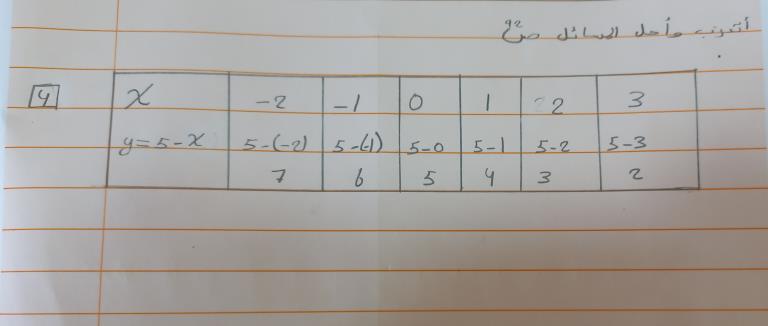 أتدرب وأحل المسائل ص 92
4 x -2 -1 0 1 2 3
y=5-x 5-(-2) 5-(-1) 5-0 5-1 5-2 5-3
7 6 5 4 3 2